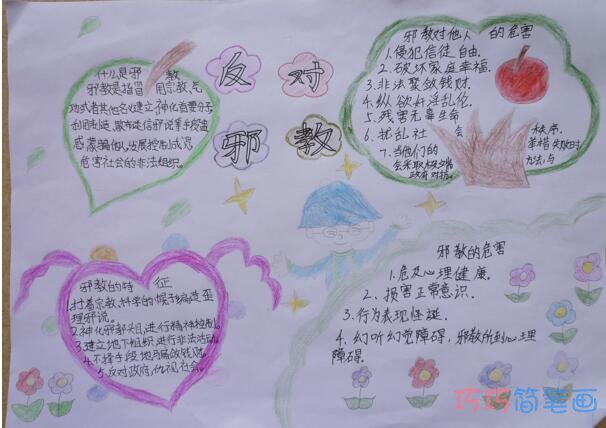 反对
邪教
什么是邪教
邪教是指冒用宗教、气
功或者其他名义建立,神化首要分子
利用制造、散布迷信邪说等手段蛊
惑蒙骗他人,发展控制成员
危害社会的非法组织。
邪教对他人的危害
1.侵犯信徒自由.
2.破坏家庭幸福.
3.非法聚敛钱财.
4.纵欲奸淫乱伦.
5.残害无辜生命
6.扰乱社会秩序.
7.当他们的
会采取极端
政府对抗.
邪教的特征
理邪说。
2.神化邪教头目,进行精神控制。
3.建立地下组织进行非法活动。
4.不择手段地
敛钱财。
5.反对政府,仇视社会。
邪教的危害
1.危及心理健康.
2.损害正常意识.
3.行为表现怪诞.
4.幻听幻觉障碍.邪教所致心理
障碍.
巧巧简笔画